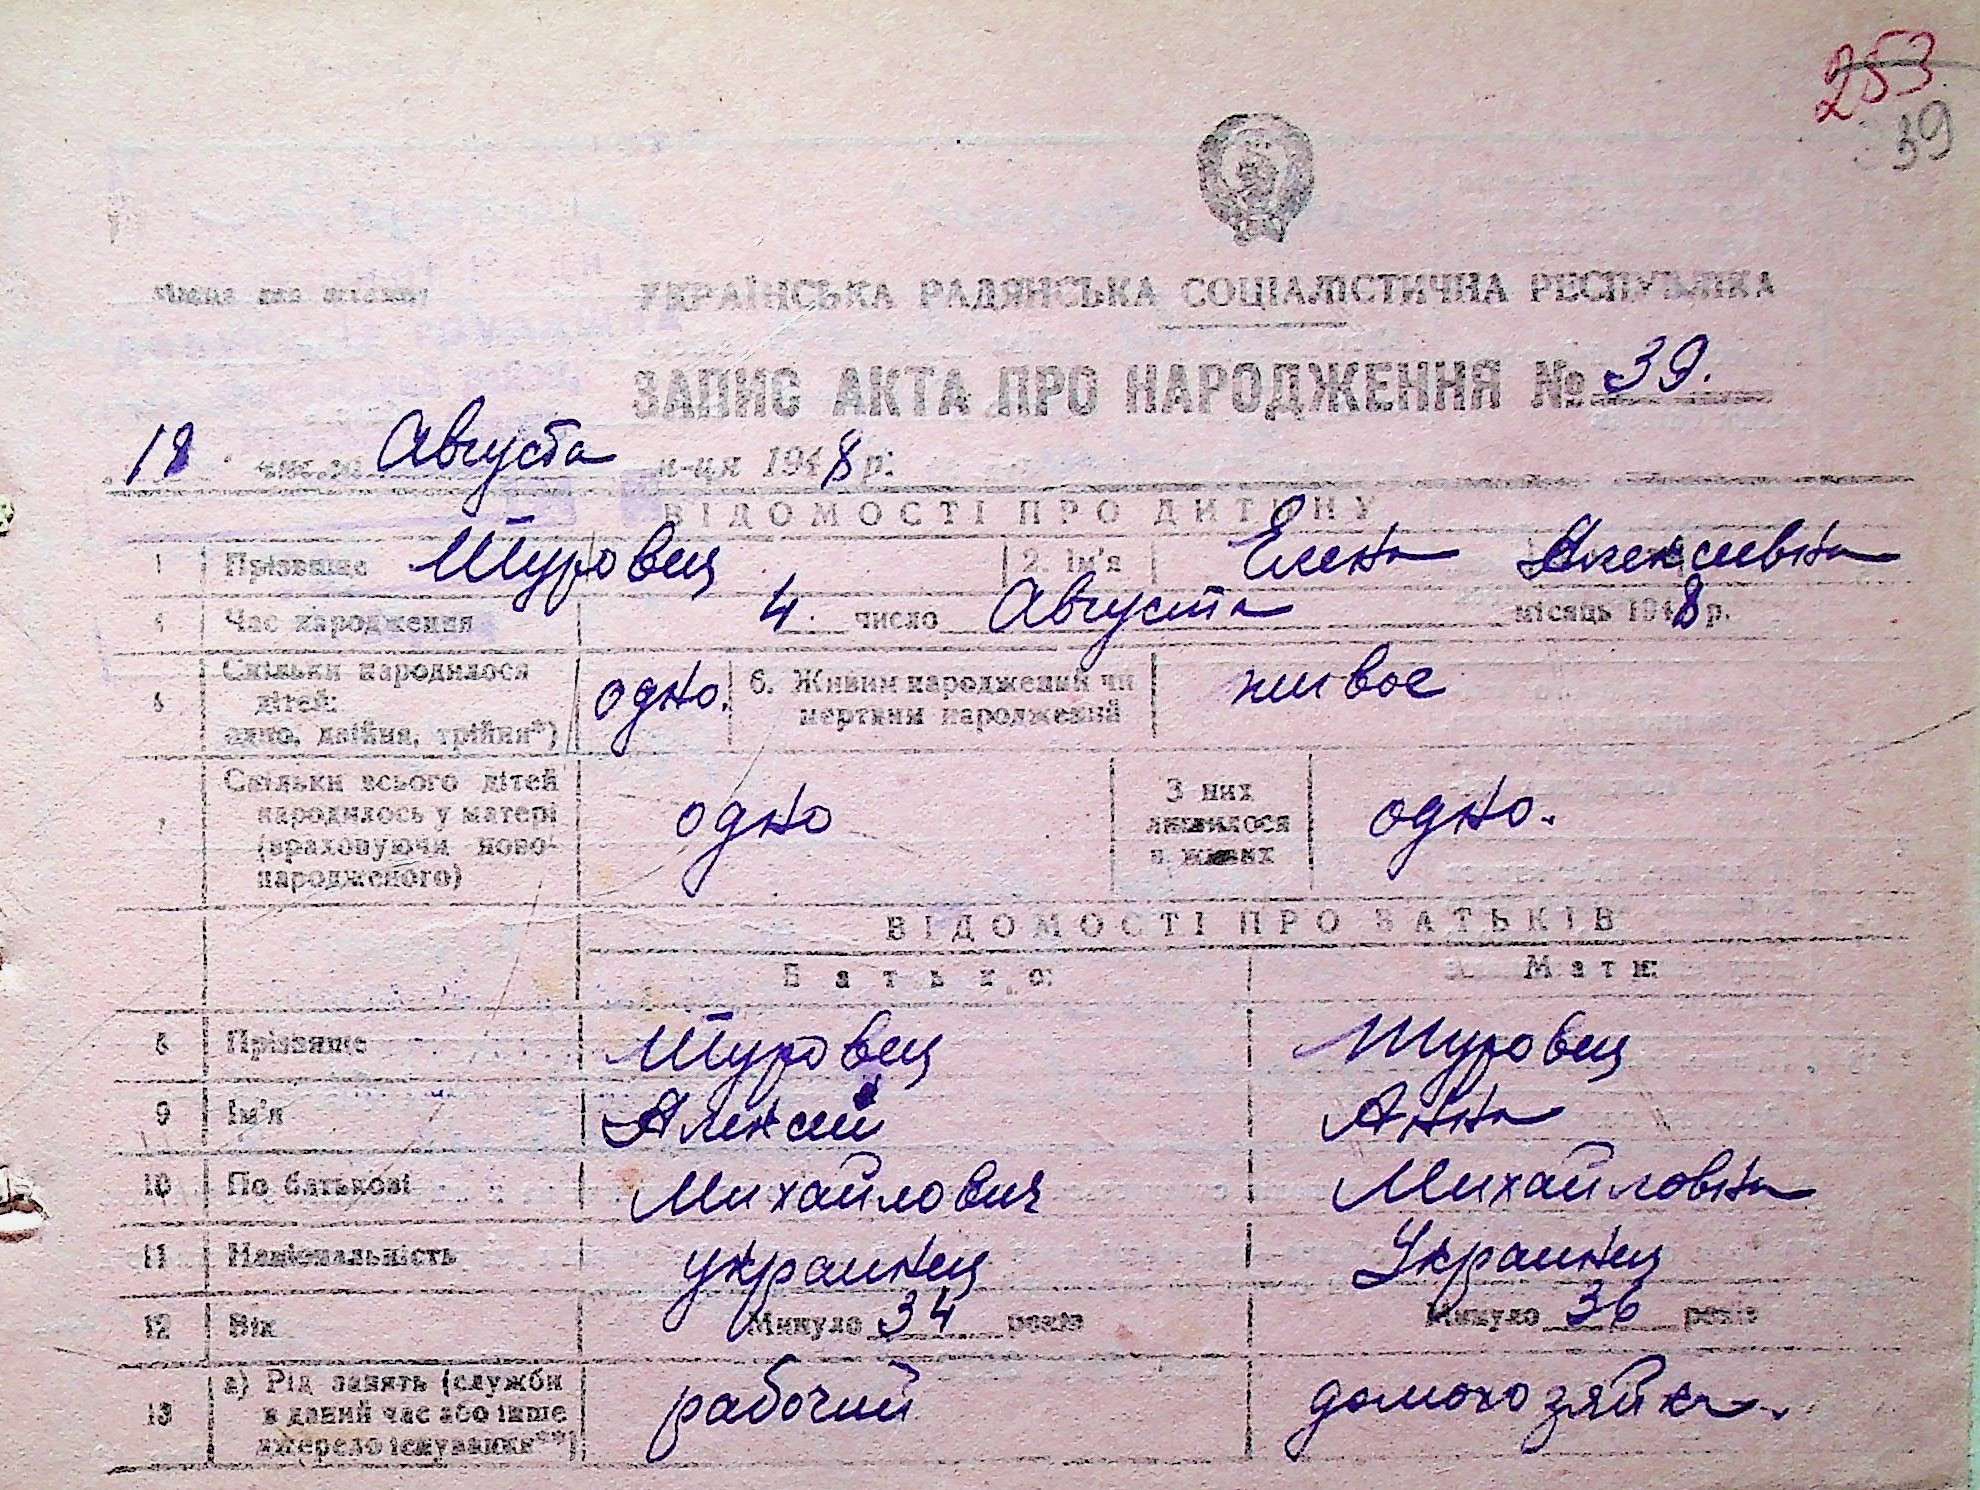 253
39
УКРАЇНСЬКА РАДЯНСЬКА СОЦІАЛІСТИЧНА РЕСПУБЛІКА
ЗАПИС АКТА ПРО НАРОДЖЕННЯ № 39.
18 числа Августа м-ця 1948 р.
ВІДОМОСТІ ПРО ДИТИНУ
1 Прізвище Туровец 2. Ім'я Елена Алексевна
4 Час народження 4. число Августа місяць 1948 р.
5 Скільки народилося дітей: одно, двійня, трійня*) одно. 6. Живим народжений чи мертвим народжений живое
7 Скільки всього дітей народилось у матері (враховуючи новонародженого) одно З них лишилося в живих одно.
ВІДОМОСТІ ПРО БАТЬКІВ
Батько: Мати:
8 Прізвище Туровец Туровец
9 Ім'я Алексей Анна
10 По батькові Михайлович Михайловна
11 Національність украинец Украинец
12 Вік Минуло 34 років Минуло 36 років
13 а) Рід занять (служби в даний час або інше джерело існування**) рабочий домохозяйка.